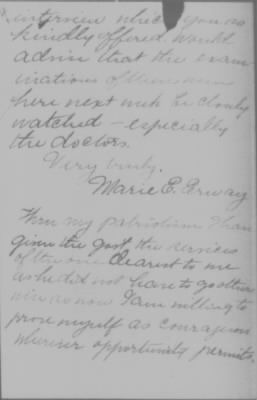 interview which you so
kindly offered. Would
advise that the exam-
inations of the men
here next week be closely
watched - especially
the doctors.
Very truly,
Marie E.
my patriotism I have
given the govt. the services
of the one dearest to me
as he did not have to go
now I am willing to
prove myself as courageous
wherever opportunity permits.